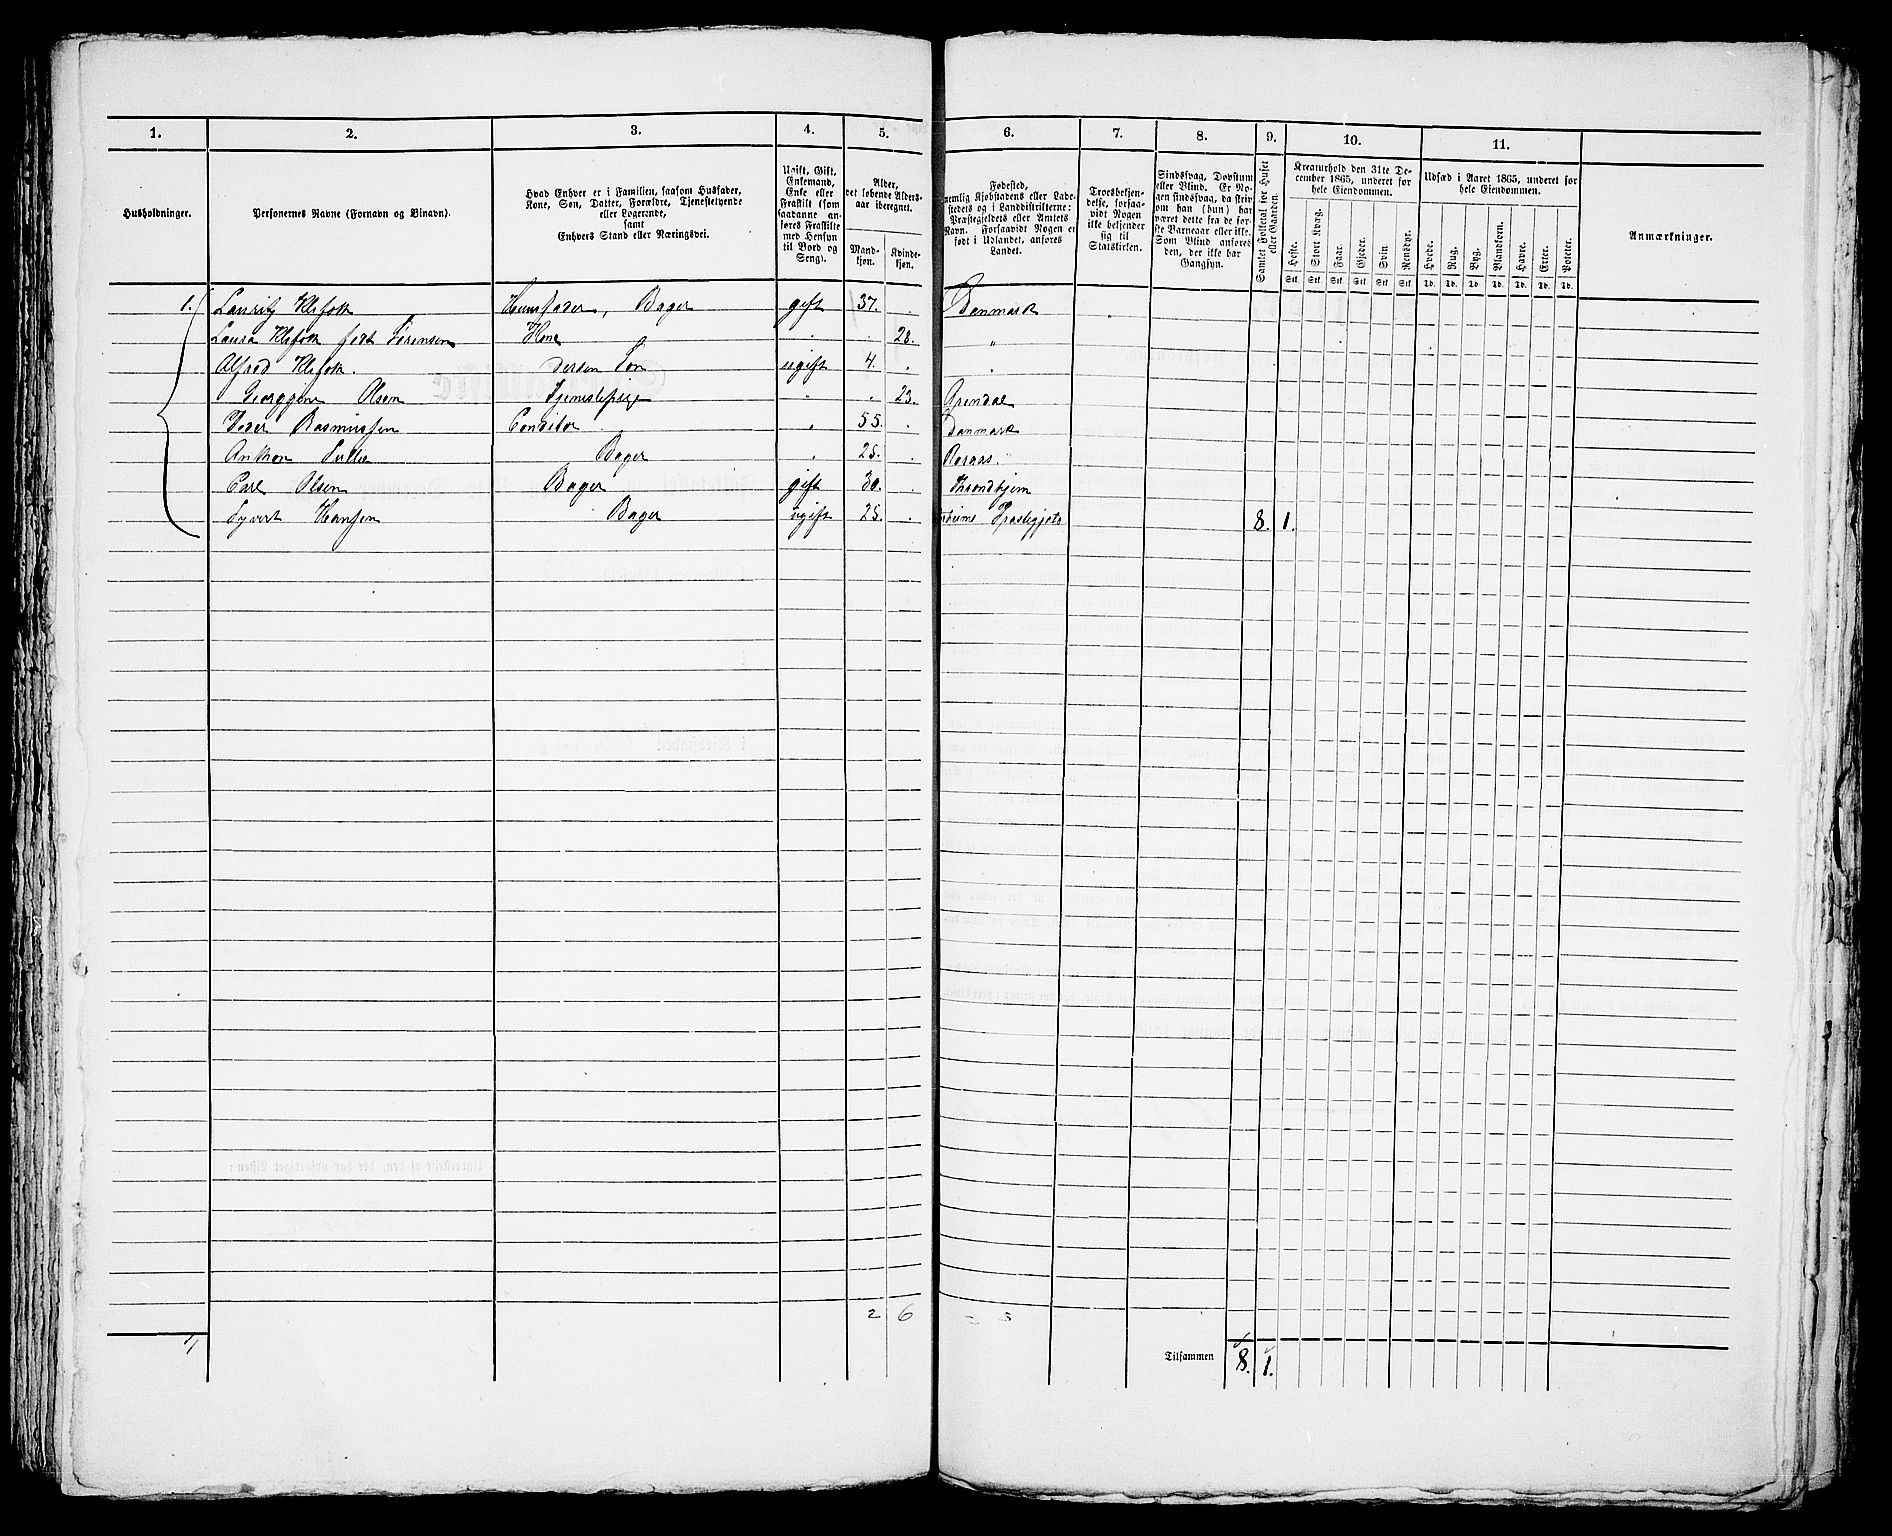 1. 2. 3. 4. 5. 6. 7. 8. 9. 10. 11.
Husholdninger.
Personernes Navne (Fornavn og Binavn).
Hvad Enhver er i Familien, saasom Husfader,
Kone, Søn, Datter, Forældre, Tjenestetyende
eller Logerende,
samt
Enhvers Stand eller Næringsvei.
Ugift, Gift,
Enkemand,
Enke eller
Fraskilt (som
saadanne an-
føres Fraskilte
med Hensyn
til Bord og
Seng).
Alder,
det løbende Alders-
aar iberegnet.
Mand-
kjøn.
Kvinde-
kjøn.
Fødested,
nemlig Kjøbstadens eller Lade-
stedets og i Landdistrikterne:
Præstegjeldets eller Amtets
Navn. Forsaavidt Nogen er
født i Udlandet, anføres
Landet.
Troesbekjen-
delse, forsaa-
vidt Nogen
ikke bekjender
sig til
Statskirken.
Sindssvag, Døvstum
eller Blind. Er No-
gen sindssvag, da skriv
om han (hun) har
været dette fra de før-
ste Barneaar eller ikke.
Som Blind anføres
den, der ikke har
Gangsyn.
Samlet Folketal for Huset
eller Gaarden.
Kreaturhold den 31te De-
cember 1865, underet for
hele Eiendommen.
Heste. Stort Kvæg. Faar. Gjeder. Svin Rensdyr.
Stk. Stk. Stk. Stk. Stk Stk
Udsæd i Aaret 1865, underet for
hele Eiendommen.
Hvede. Rug. Byg. Blandkorn. Havre. Erter. Poteter.
Td. Td. Td Td. Td. Td. Td.
Anmærkninger.
1. Lauritz Klefoth Huusfader, Bager gift 37. . Danmark
Laura Klefoth født Sørensen Kone . . 28. "
Alfred Klefoth. Deres Søn ugift 4. . "
Georggine Olsen Tjenestepige " . 23. Arendal
Peder Rasmussen Conditor " 55. . Danmark
Anthon Bager " 25. . Roraas.
Carl Olsen Bager gift 30. . Throndhjem
Syvert Hansen Bager ugift 25. . Præstegjeld 8. 1.
2 6 5
1
Tilsammen 8. 1.